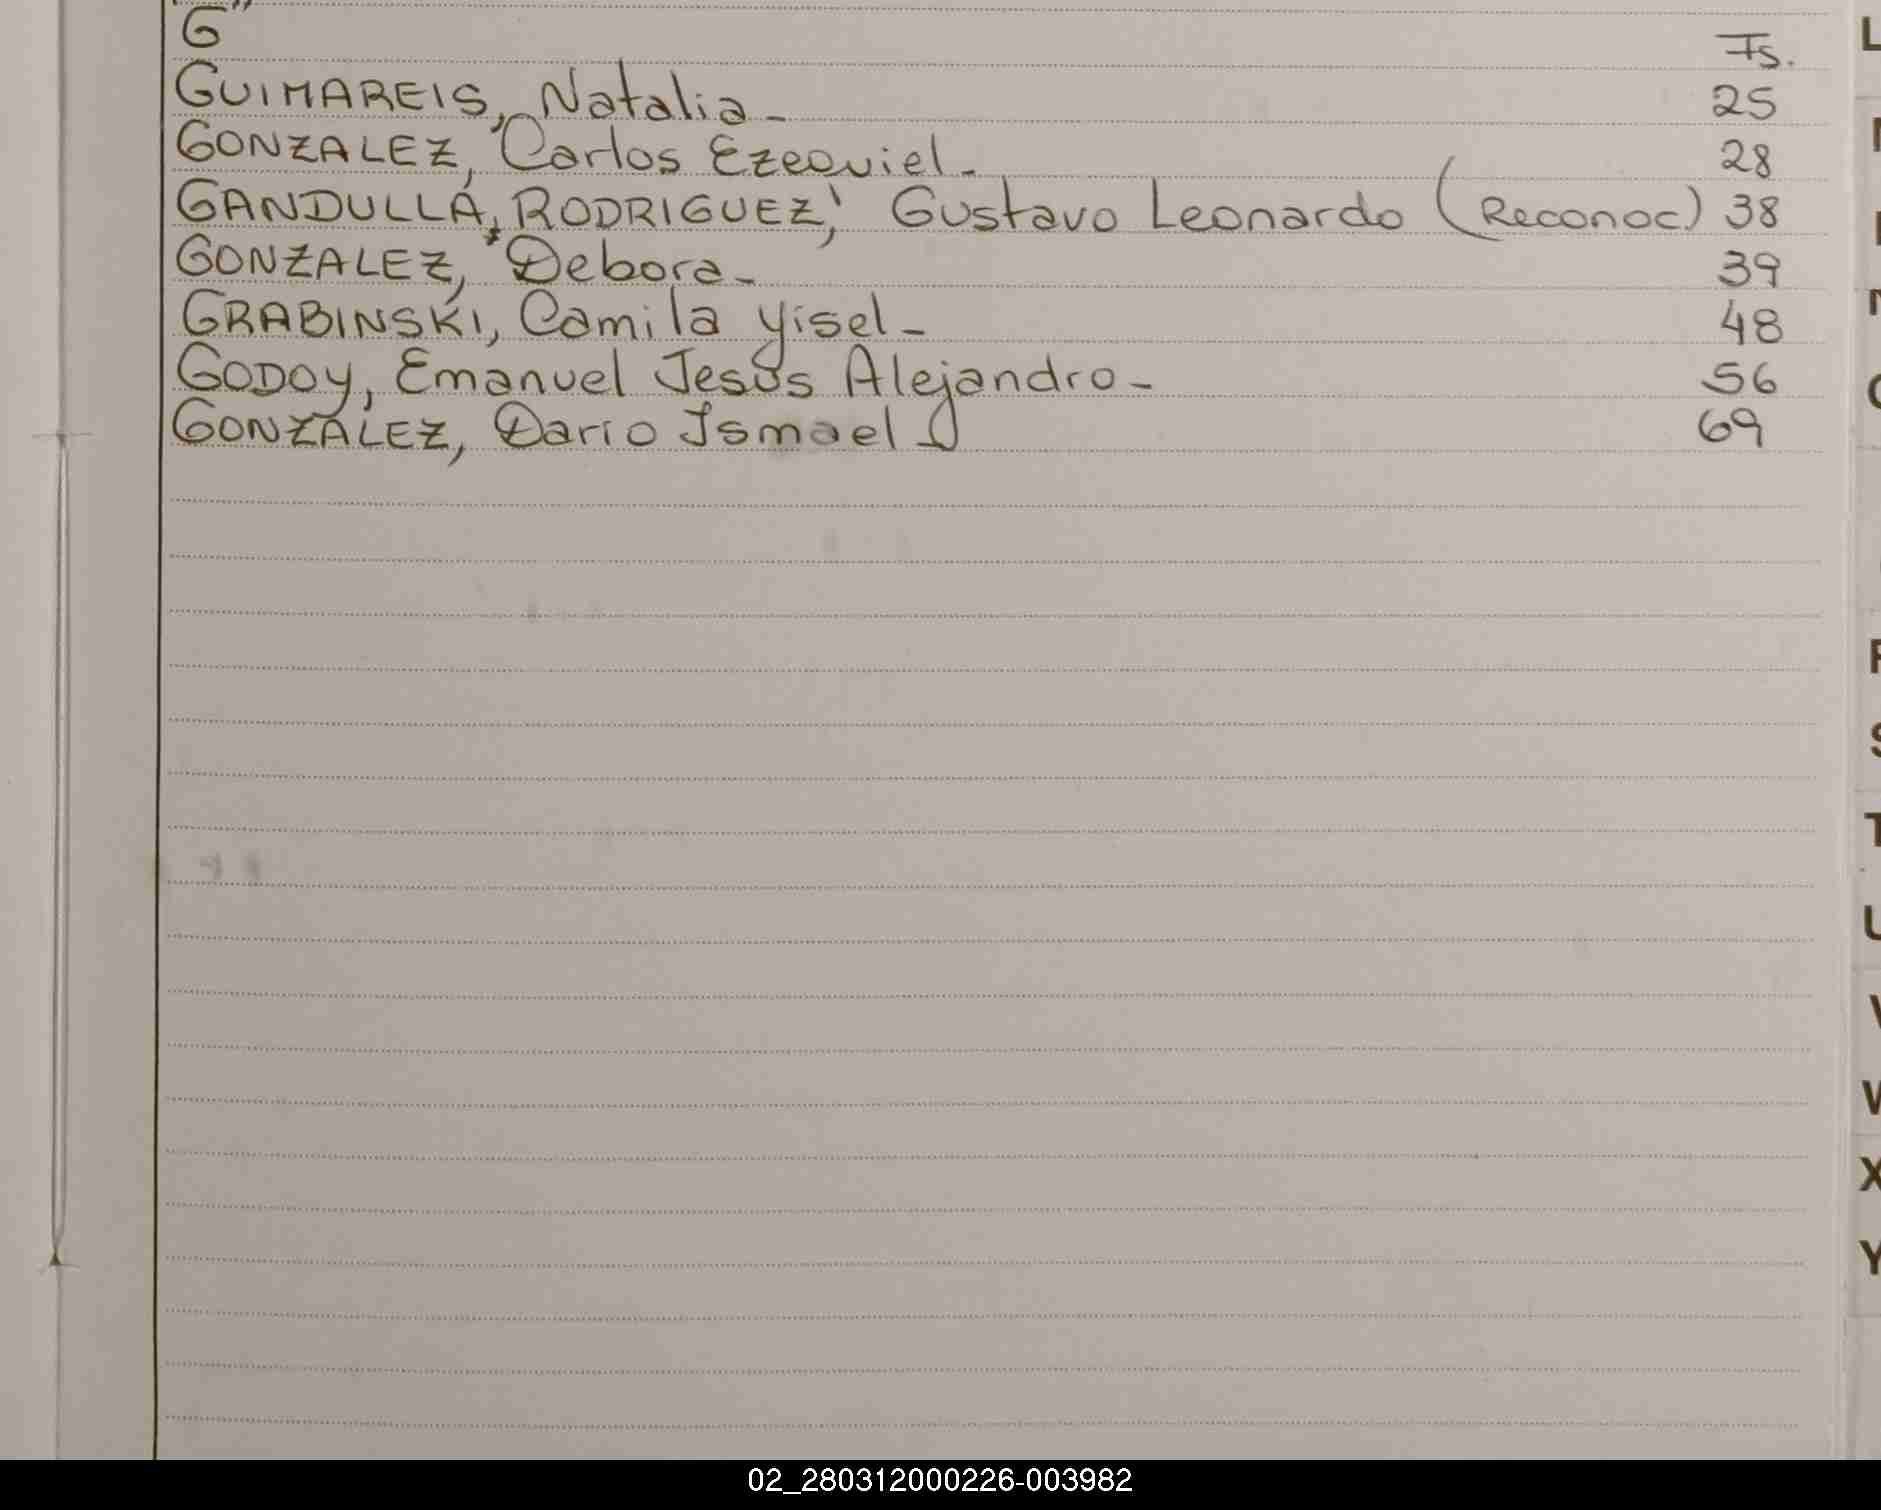 "G"
Fs.
GUIMAREIS, Natalia - 25
GONZALEZ, Carlos Ezequiel - 28
GANDULLA, RODRIGUEZ, Gustavo Leonardo (Reconoc) 38
GONZALEZ, Debora - 39
GRABINSKI, Camila Yisel - 48
GODOY, Emanuel Jesus Alejandro - 56
GONZALEZ, Dario Ismael 69
L
N
O
R
S
T
U
V
W
X
Y
02_280312000226-003982